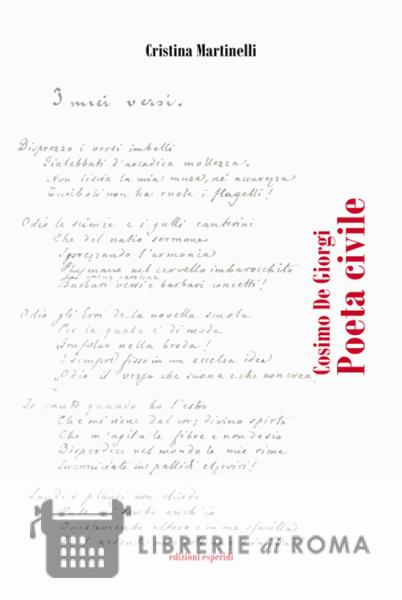 Cristina Martinelli
I miei versi.
Disprezzo i versi imbelli
Giulebbati d'arcadica mollezza.
Non liscia la mia musa, nè accarezza
non ha ruota i flagelli!
Odio le scimie e i grulli canterini
Che del natio sermone
Sprezzando l'armonia
nel cervello imbarocchito
Barbari versi e barbari concetti!
Odio gli Eroi de la novella scuola
Per la quale è di moda
nella broda!
E sempre fisso in una eccelsa idea
"Odio il verso che suona e che non crea
Io canto quando ho l'estro
Che mi viene dal cor; divino spirto
Che m'agita le fibre e non desio
Disperdere nel mondo le mie rime
Incorniciate in pallidi elzeviri!
Laudi e plausi non chiedo
anch'io
Onestamente altero e in me sfavilla
Cosimo De Giorgi
Poeta civile
LIBRERIE di ROMA
edizioni esperidi